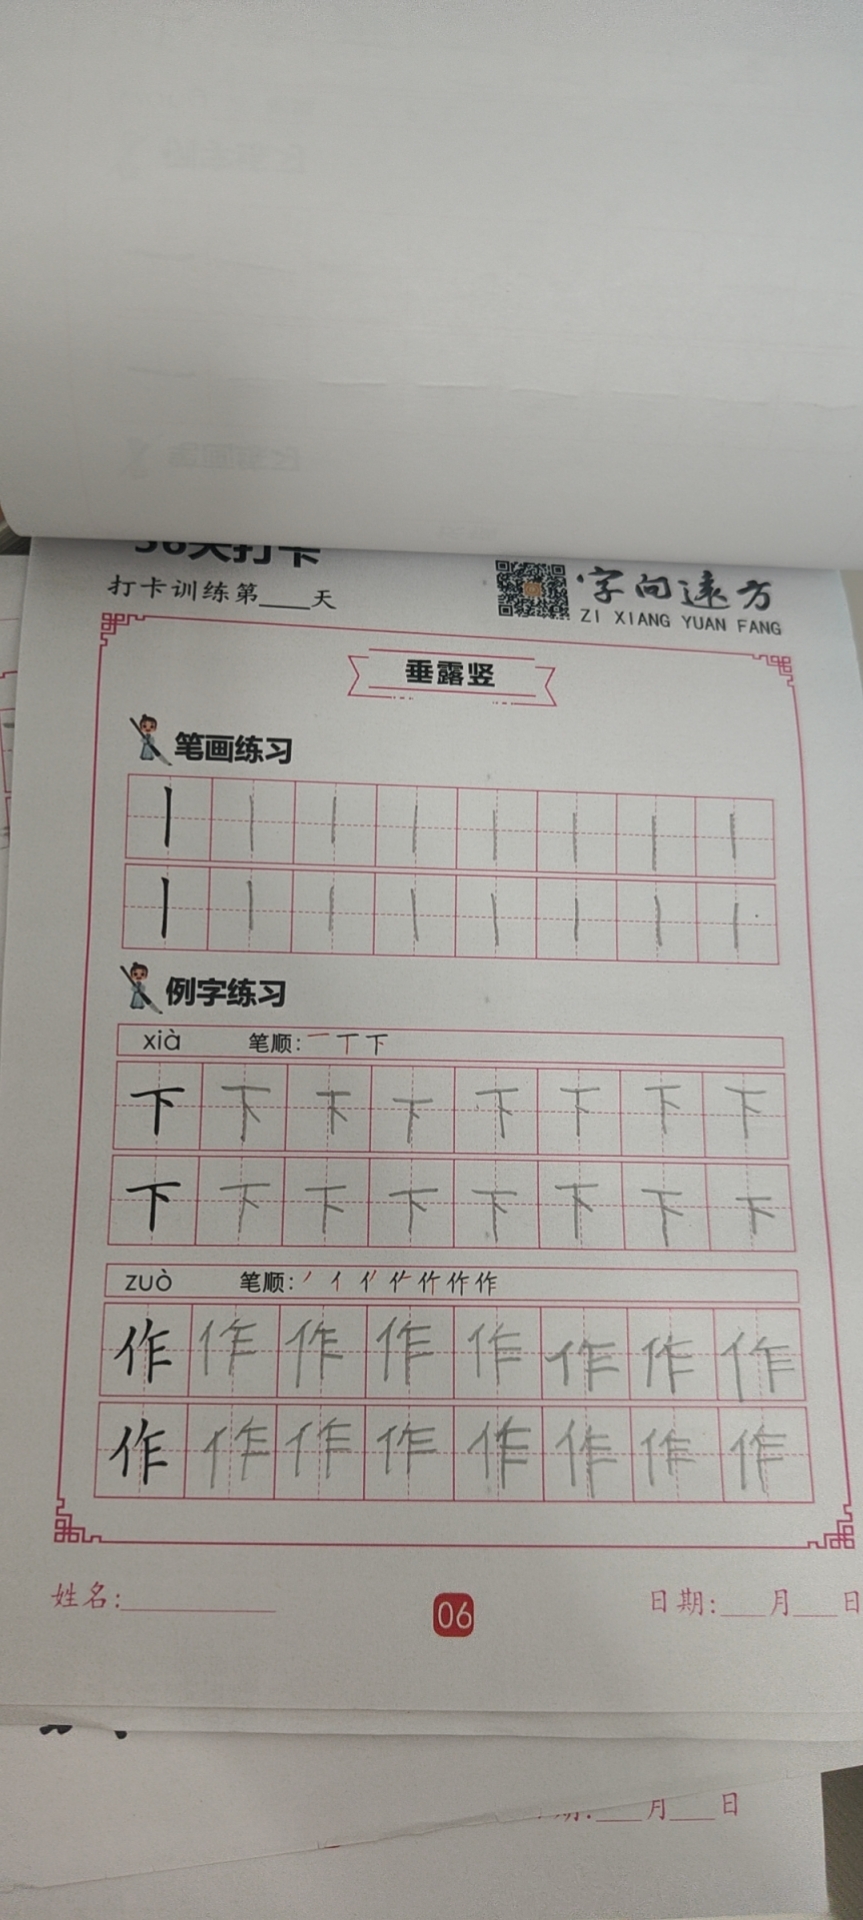 36天打卡
打卡训练第____天
字向遠方
ZI XIANG YUAN FANG
垂露竖
笔画练习
丨 丨 丨 丨 丨 丨 丨 丨
丨 丨 丨 丨 丨 丨 丨 丨
例字练习
xià 笔顺: 一 丅 下
下 下 下 下 下 下 下 下
下 下 下 下 下 下 下 下
zuò 笔顺:
作 作 作 作 作 作 作 作
作 作 作 作 作 作 作 作
姓名:__________ 06 日期:___月___日
期:___月___日